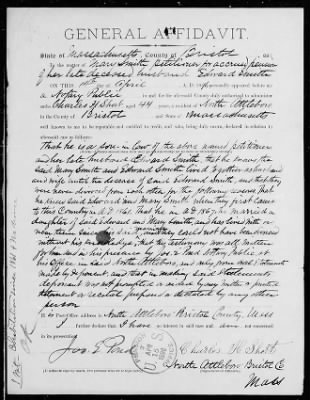 GENERAL AFFIDAVIT.
State of Massachusetts, County of Bristol, ss:
In the matter of Mary Smith petitioner for accrued pension
of her late deceased husband Edward Smith
ON THIS day of April A. D. personally appeared before me
a Notary Public in and for the aforesaid County duly authorized to administer
oaths Charles H Short aged 44 years, a resident of North Attleboro
in the County of Bristol and State of Massachusetts
well known to me to be reputable and entitled to credit, and who, being duly sworn, declared in relation to
aforesaid case as follows:
That he is a son in law of the above named petitioner
and her late husband Edward Smith, that he knows the
said Mary Smith and Edward Smith lived together as husband
and wife until the decease of said Edward Smith, and that they
were never divorced from each other for the following reasons that
he knew said Edward and Mary Smith when they first came
to this Country in A.D. that he in A.D. 1867 he married a
daughter of said Edward and Mary Smith, and has lived with or
near them since, and they could not have been divorced
without his knowledge, that this testimony was all written
for him and in his presence by Jos. E. Pond Notary Public at
his office in said North Attleboro, and only from oral statements
made by deponent, and that in making said statements
deponent was not prompted or aided by any written or printed
statement or recital prepared or dictated by any other
person
Post-Office address is North Attleboro Bristol County, Mass
further declare that I have no interest in said case and not concerned
in its prosecution.
Jos. E. Pond
Charles H Short
North Attleboro Bristol C
Mass